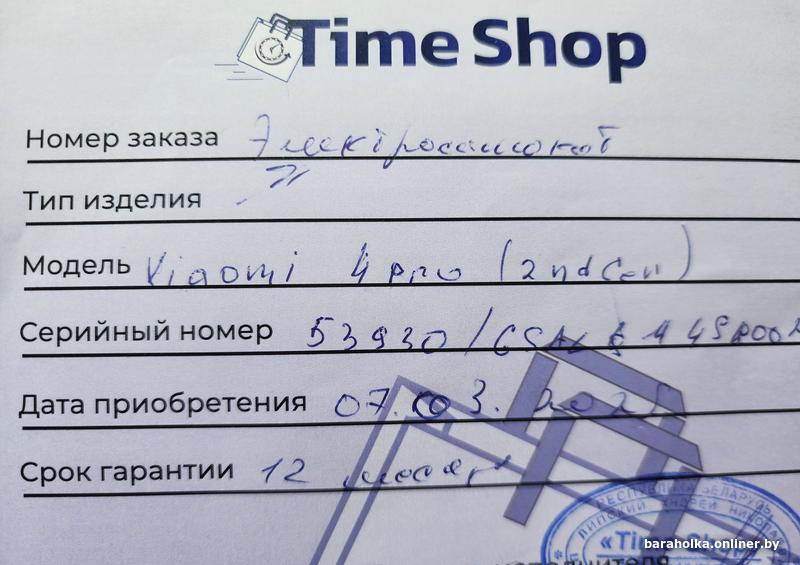 Time Shop
Номер заказа Электросамокат
Тип изделия - " -
Модель Xiaomi 4 pro (2nd Gen)
Серийный номер 53930/
Дата приобретения 07.03.2025
Срок гарантии 12 месяцев
РЕСПУБЛИКА БЕЛАРУСЬ
ЛИПСКИЙ АНДРЕЙ
«Time Shop»
baraholka.onliner.by